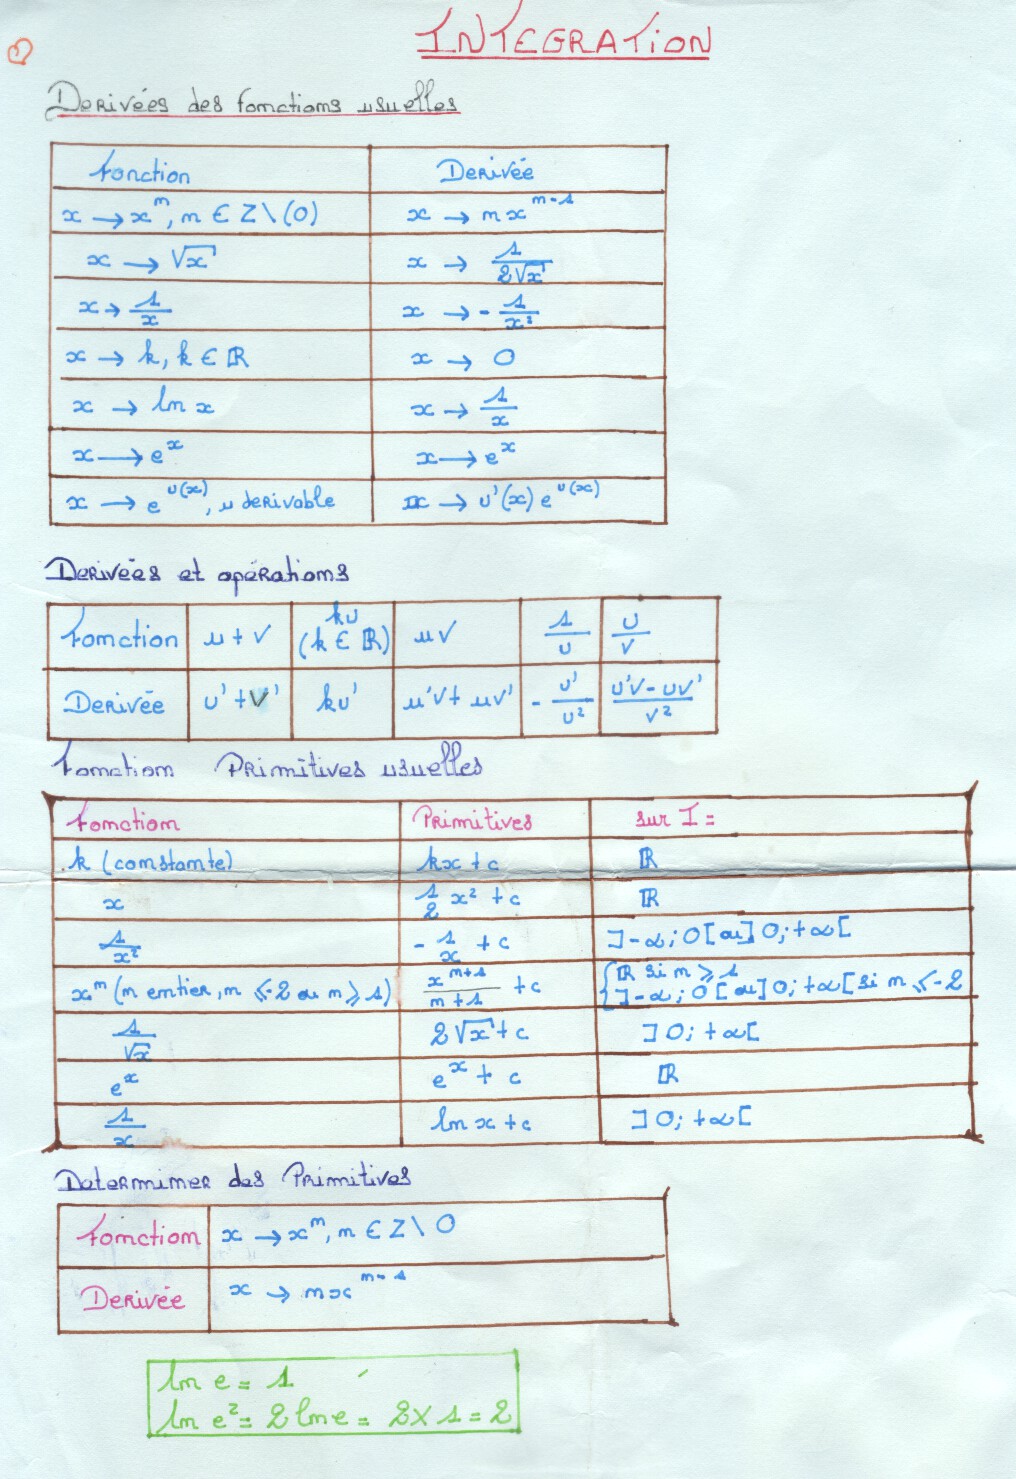 INTEGRATION
Derivées des fonctions usuelles
fonction Derivée
x → xⁿ, n ∈ Z \ (0) x → nxⁿ⁻¹
x → √x x → 1/(2√x)
x → 1/x x → - 1/x²
x → k, k ∈ ℝ x → 0
x → ln x x → 1/x
x → eˣ x → eˣ
x → e^(u(x)), u derivable x → u'(x) e^(u(x))
Derivées et opérations
fonction u + v ku (k ∈ ℝ) uv 1/u u/v
Derivée u' + v' ku' u'v + uv' - u'/u² (u'v - uv')/v²
fonction Primitives usuelles
fonction Primitives sur I =
k (constante) kx + c ℝ
x 1/2 x² + c ℝ
1/x² - 1/x + c ]-∞; 0[ ou ]0; +∞[
xⁿ (n entier, n ≤ -2 ou n ≥ 1) xⁿ⁺¹/(n+1) + c { ℝ si n ≥ 1
]-∞; 0[ ou ]0; +∞[ si n ≤ -2
1/√x 2√x + c ]0; +∞[
eˣ eˣ + c ℝ
1/x ln x + c ]0; +∞[
Determiner des Primitives
fonction x → xⁿ, n ∈ Z \ 0
Derivée x → nxⁿ⁻¹
ln e = 1
ln e² = 2 ln e = 2 × 1 = 2